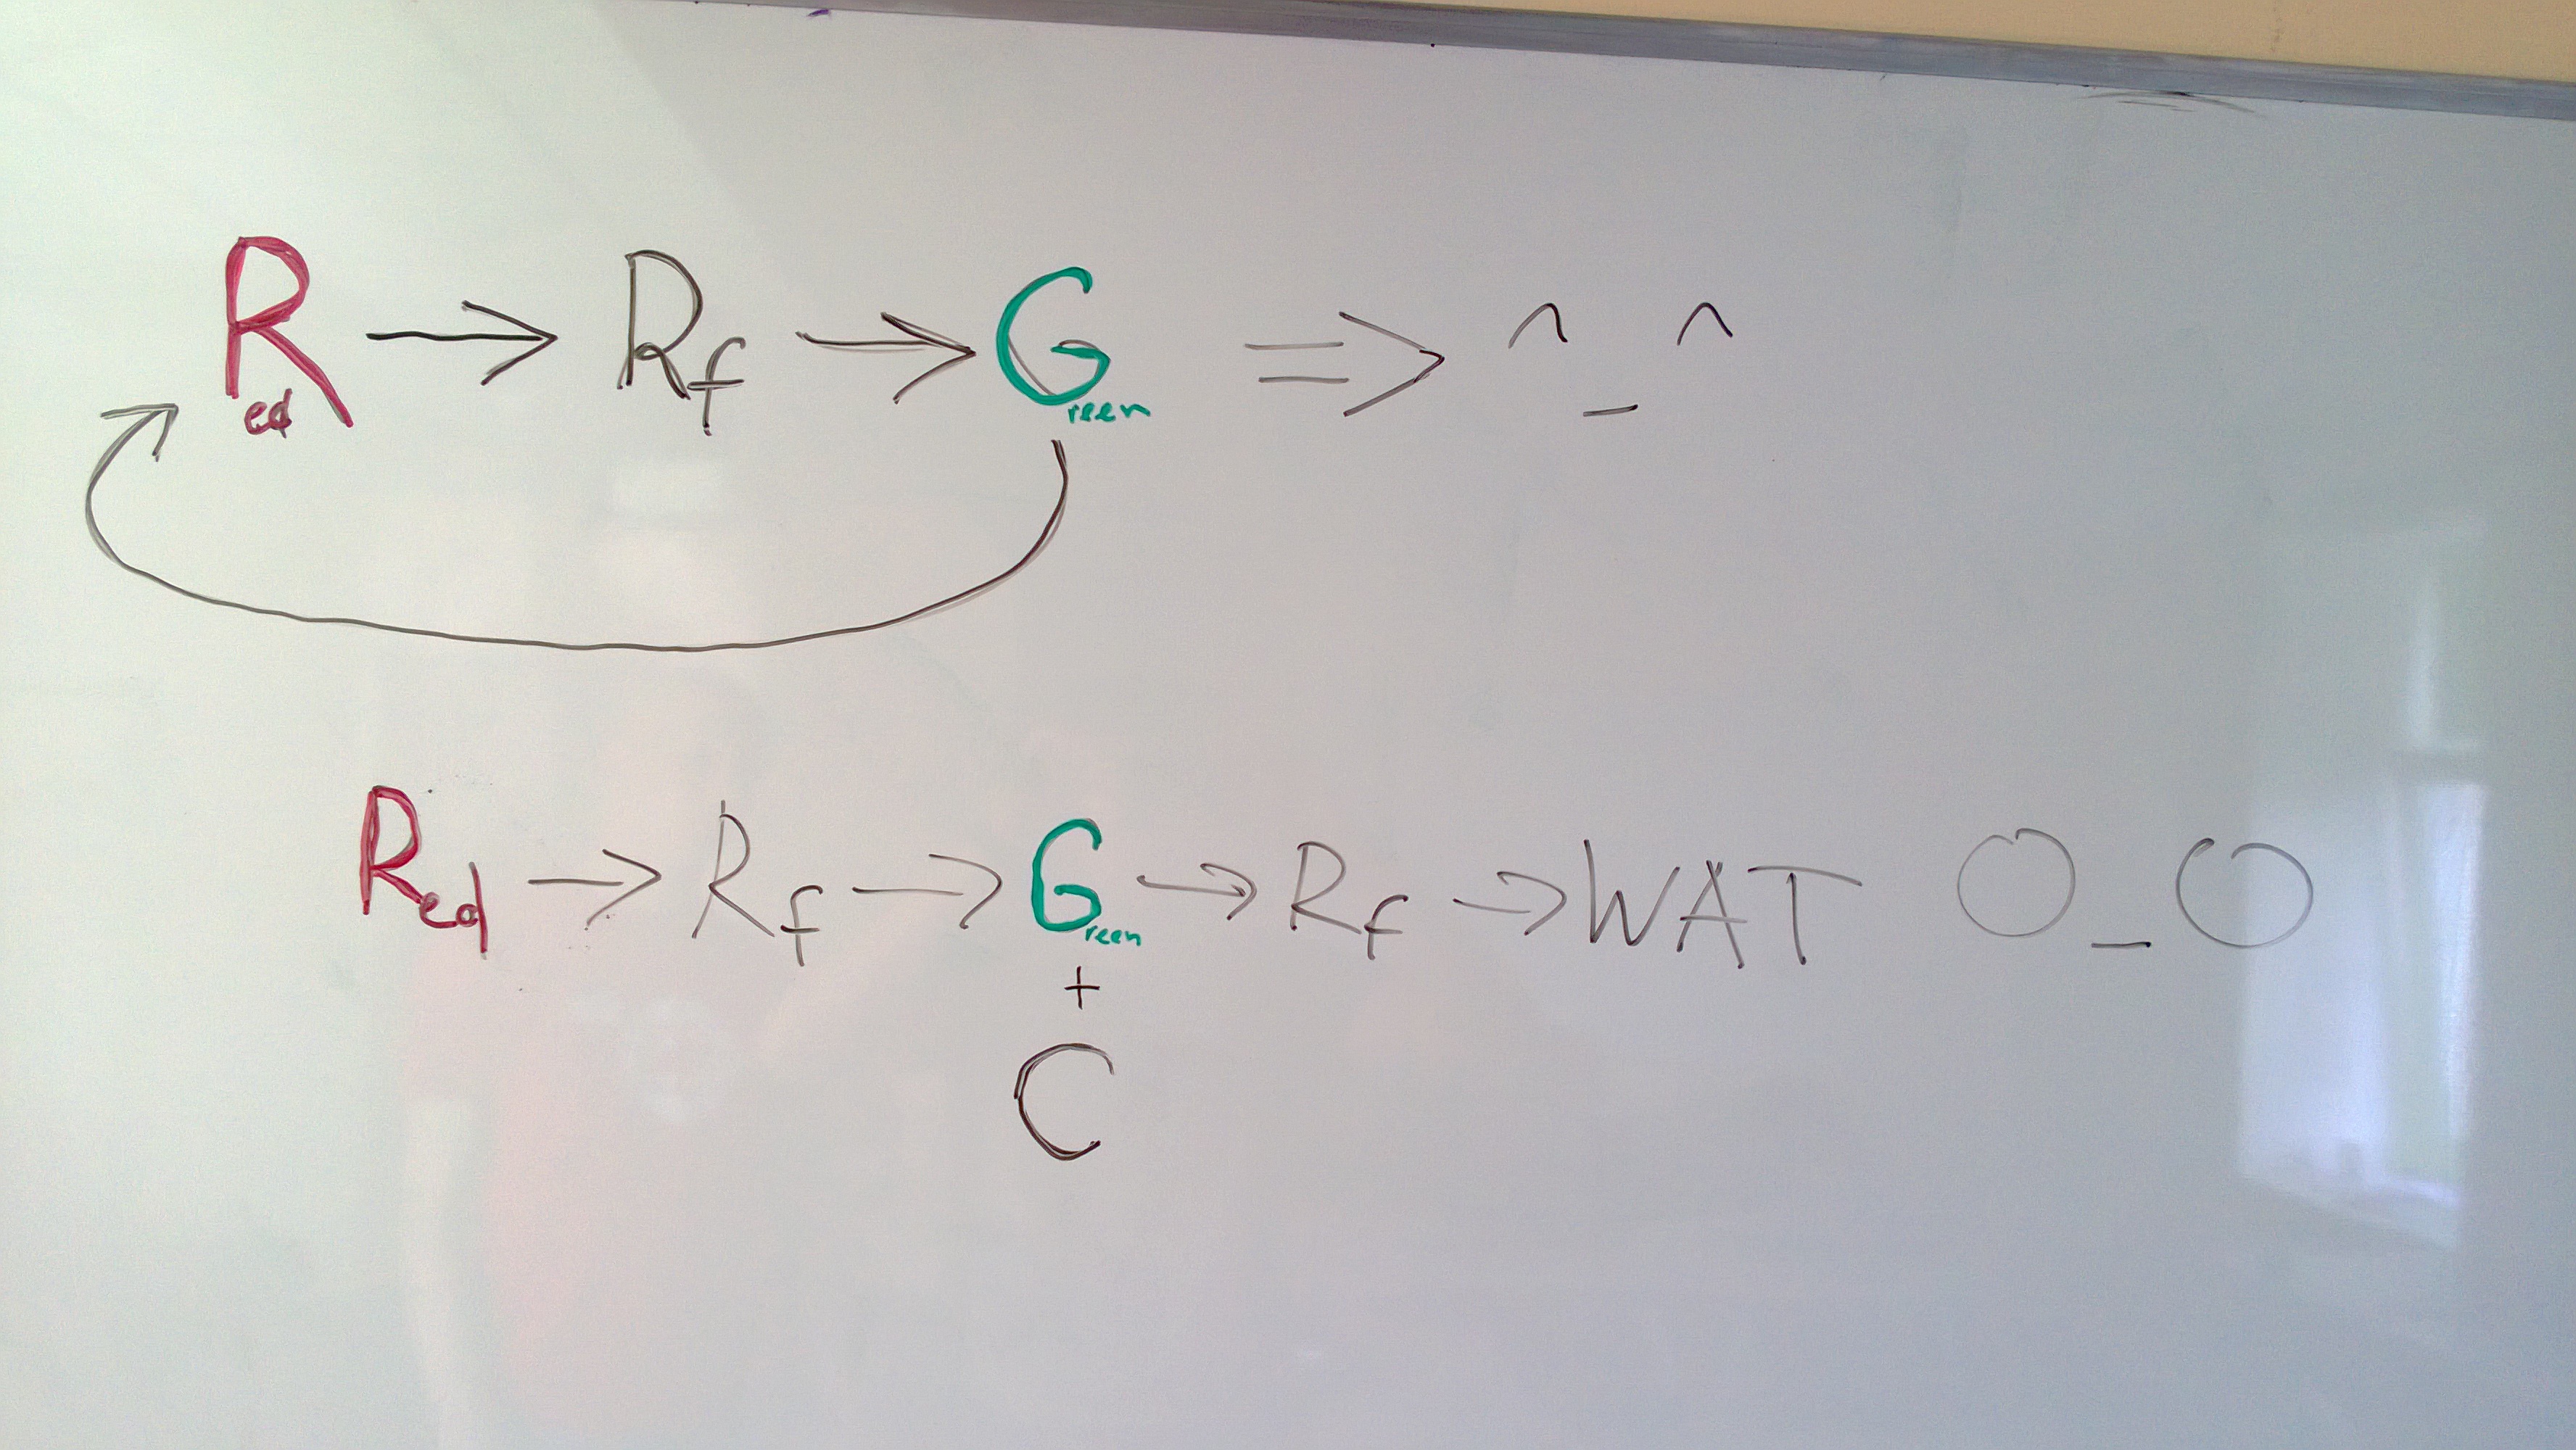 Red → Rf → Green => ^_^
Red → Rf → Green → Rf → WAT O_O
+
C